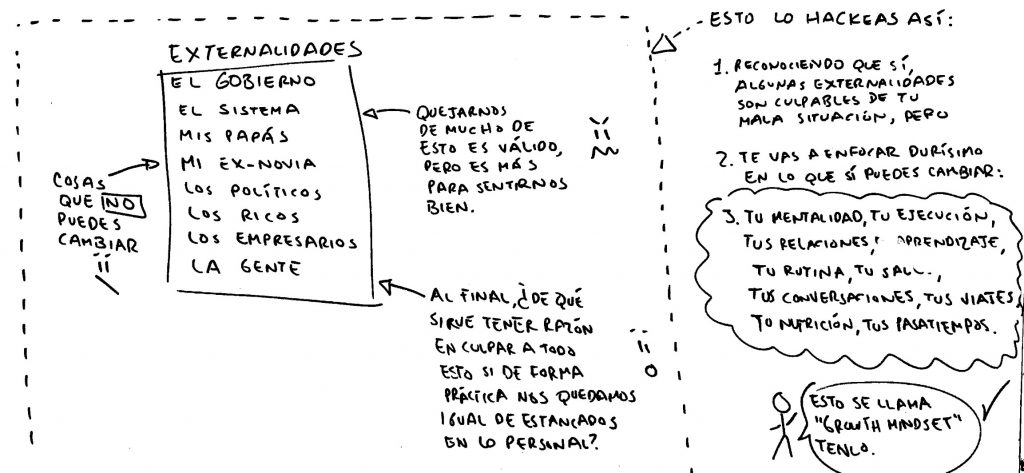 EXTERNALIDADES
EL GOBIERNO
EL SISTEMA
MIS PAPÁS
MI EX-NOVIA
LOS POLÍTICOS
LOS RICOS
LOS EMPRESARIOS
LA GENTE
COSAS
QUE NO
PUEDES
CAMBIAR
QUEJARNOS
DE MUCHO DE
ESTO ES VÁLIDO,
PERO ES MÁS
PARA SENTIRNOS
BIEN.
AL FINAL, ¿DE QUÉ
SIRVE TENER RAZÓN
EN CULPAR A TODO
ESTO SI DE FORMA
PRÁCTICA NOS QUEDAMOS
IGUAL DE ESTANCADOS
EN LO PERSONAL?
ESTO LO HACKEAS ASÍ:
1. RECONOCIENDO QUE SÍ,
ALGUNAS EXTERNALIDADES
SON CULPABLES DE TU
MALA SITUACIÓN, PERO
2. TE VAS A ENFOCAR DURÍSIMO
EN LO QUE SÍ PUEDES CAMBIAR:
3. TU MENTALIDAD, TU EJECUCIÓN,
TUS RELACIONES, APRENDIZAJE,
TU RUTINA, TU
TUS CONVERSACIONES, TUS VIAJES,
TU NUTRICIÓN, TUS PASATIEMPOS.
ESTO SE LLAMA
"GROWTH MINDSET"
TENLO.